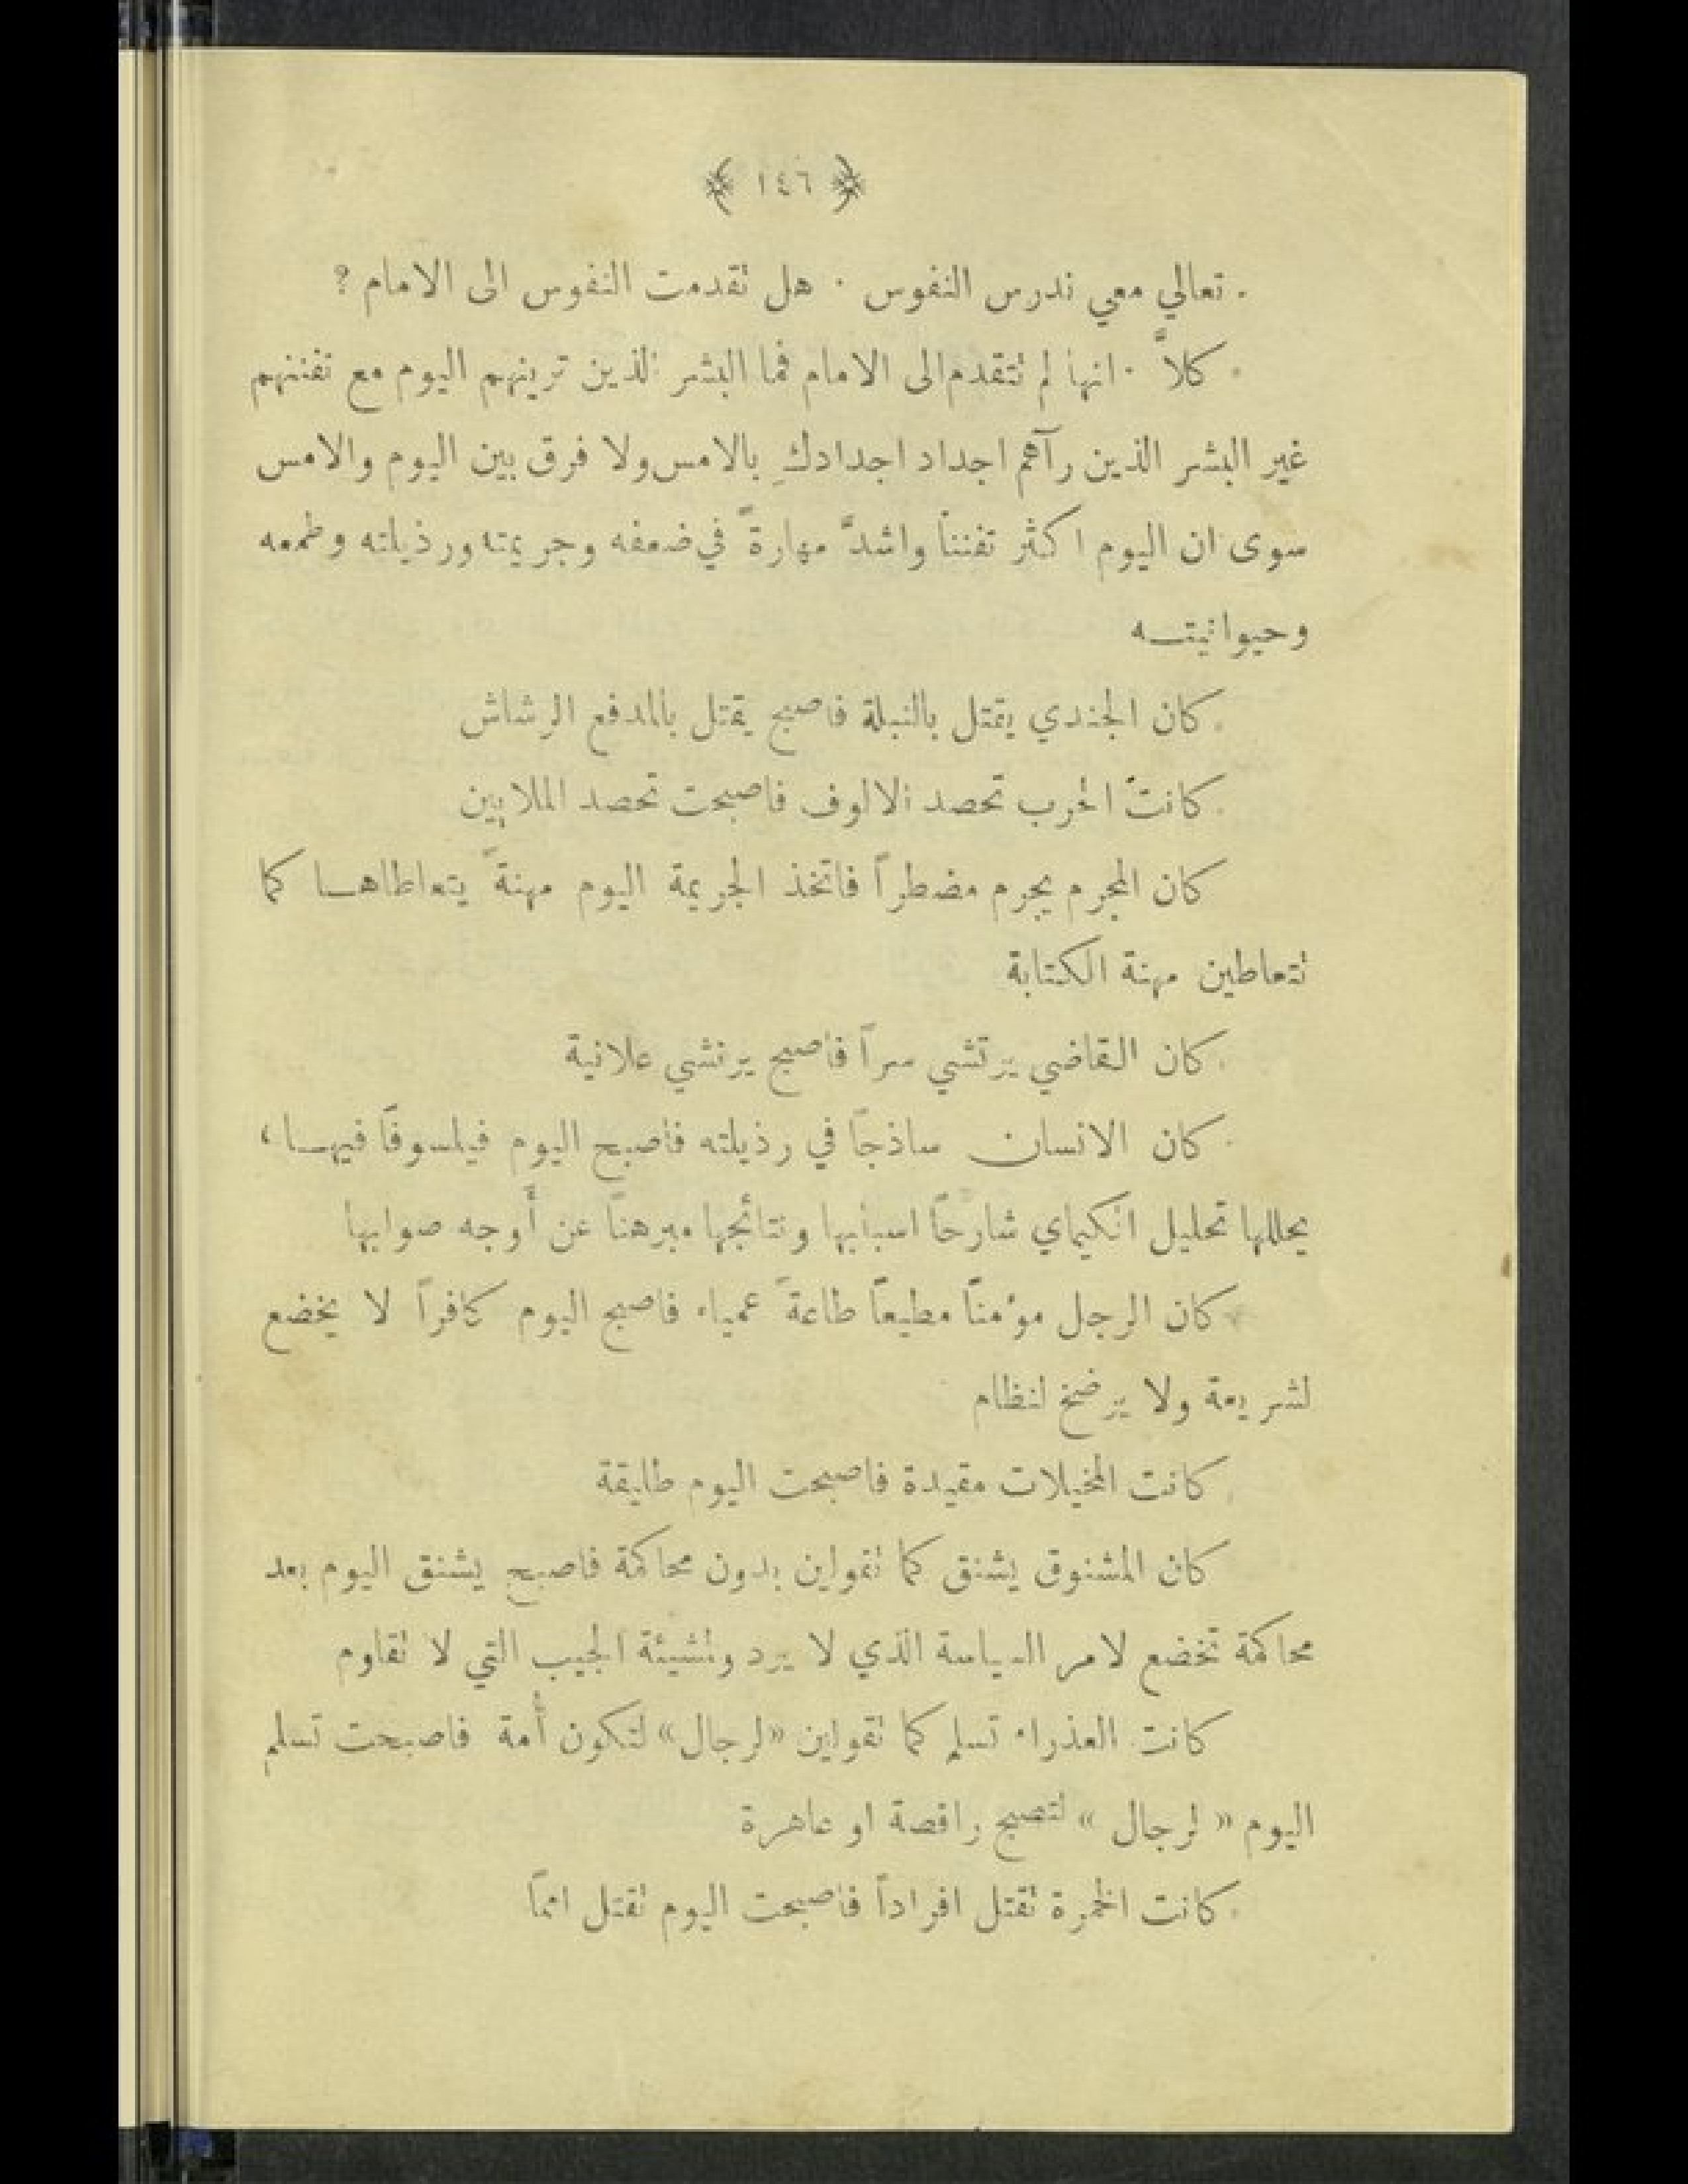 ﴿ ١٤٦ ﴾
تعالي معي ندرس النفوس . هل تقدمت النفوس الى الامام ?
كلاَّ . انها لم تتقدم الى الامام فما البشر الذين ترينهم اليوم مع تفننهم
غير البشر الذين رآهم اجداد اجدادكِ بالامس ولا فرق بين اليوم والامس
سوى ان اليوم اكثر تفنناً واشدَّ مهارةً في ضعفه وجريمته ورذيلته وطمعه
وحيوانيتــه
كان الجندي يقتل بالنبلة فاصبح يقتل بالمدفع الرشاش
كانت الحرب تحصد الالوف فاصبحت تحصد الملايين
كان المجرم يجرم مضطراً فاتخذ الجريمة اليوم مهنةً يتعاطاهــا كما
تتعاطين مهنة الكتابة
كان القاضي يرتشي سراً فاصبح يرتشي علانية
كان الانسان ساذجاً في رذيلته فاصبح اليوم فيلسوفاً فيهــا ،
يحللها تحليل الكيماي شارحاً اسبابها ونتائجها مبرهناً عن أَوجه صوابها
كان الرجل مؤمناً مطيعاً طاعةً عمياء فاصبح اليوم كافراً لا يخضع
لشريعة ولا يرضخ لنظام
كانت المخيلات مقيدة فاصبحت اليوم طليقة
كان المشنوق يشنق كما تقولين بدون محاكمة فاصبح يشنق اليوم بعد
محاكمة تخضع لامر السياسة الذي لا يرد ومشيئة الجيب التي لا تقاوم
كانت العذراء تسلم كما تقولين «لرجال» لتكون أَمة فاصبحت تسلم
اليوم « لرجال » لتصبح راقصة او عاهرة
كانت الخمرة تقتل افراداً فاصبحت اليوم تقتل امماً